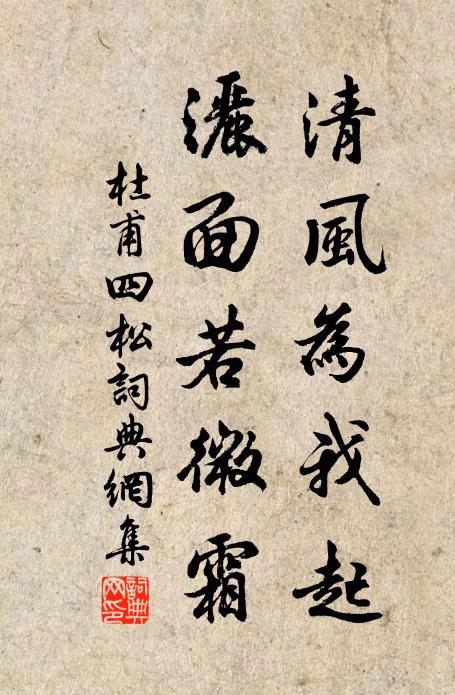 清風為我起
灑面若微霜
杜甫四松詞典網集
詞典網印